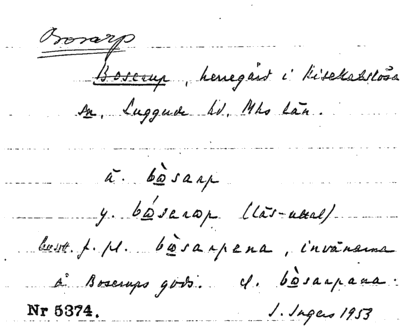 Bosarp
Boserup, herregård i Kisekabslösa
sn, Luggude hd, Mhs län.
ä. bòsarp
y. bósarωp (läs-uttal)
f. pl. bòsarpana, invånarna
å Boserups gods. d. bòsarpana.
Nr 5374. I. Ingers 1953